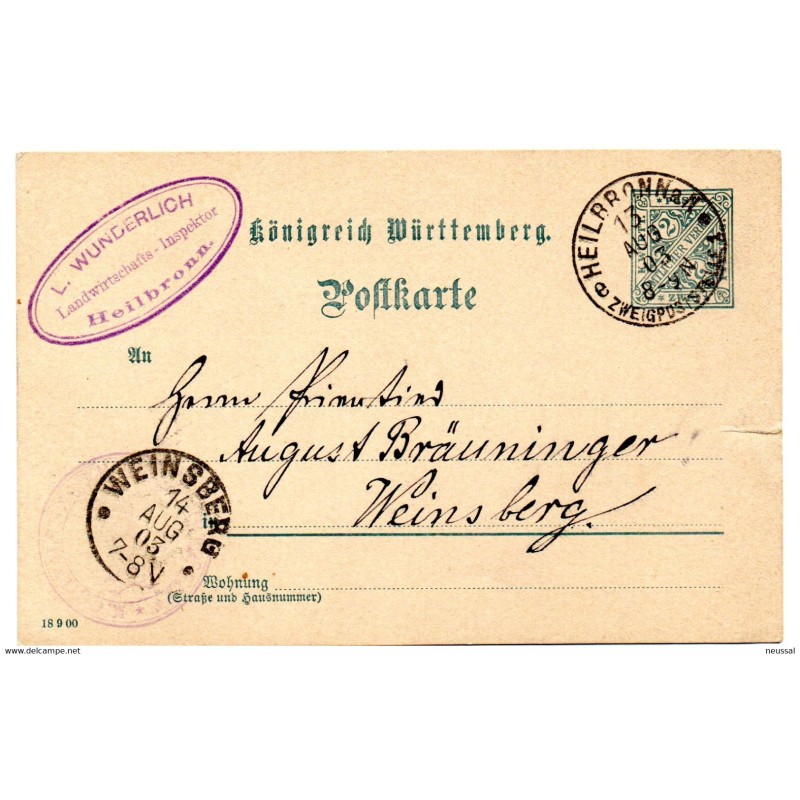 L. WUNDERLICH
Landwirtschafts-Inspektor
Heilbronn.
Königreich Württemberg.
Postkarte
HEILBRONN a.N.
13
AUG
03
8-9 N
ZWEIGPOST
2
An
Herrn
August Bräuninger
in Weinsberg.
WEINSBERG
14
AUG
03
7-8 V
Wohnung
(Straße und Hausnummer)
18 9 00
www.delcampe.net
neussal